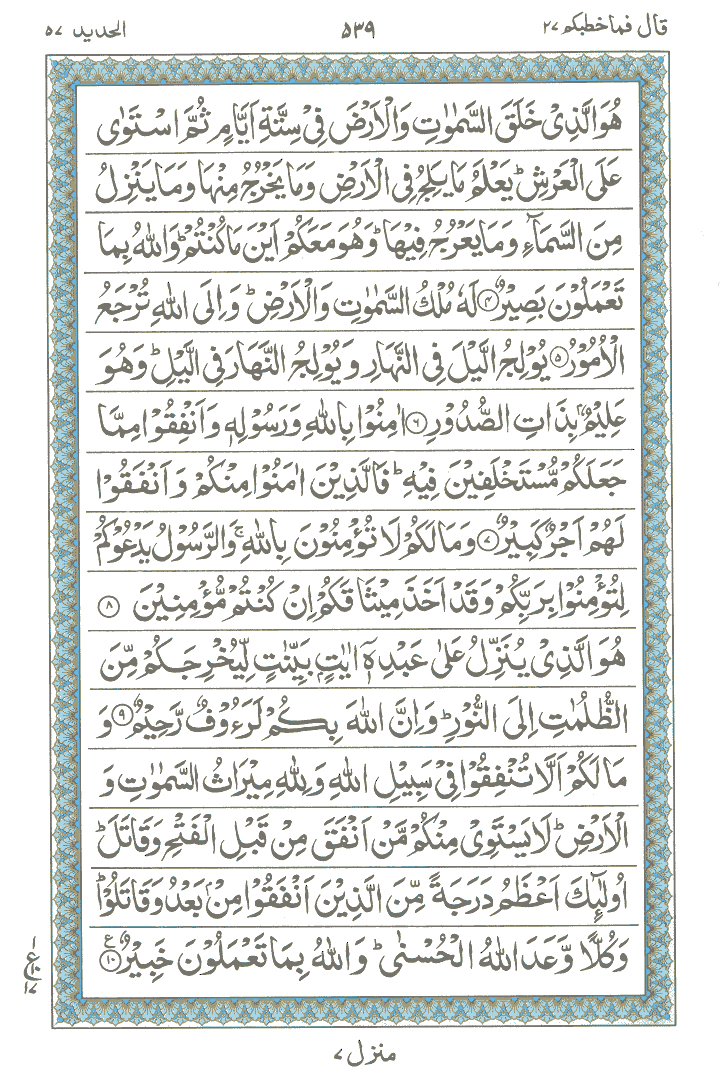 قال فما خطبكم ٢٧
٥٣٩
الحدید ٥٧
هُوَ الَّذِیْ خَلَقَ السَّمٰوٰتِ وَالْاَرْضَ فِیْ سِتَّةِ اَیَّامٍ ثُمَّ اسْتَوٰی
عَلَی الْعَرْشِ ؕ یَعْلَمُ مَا یَلِجُ فِی الْاَرْضِ وَمَا یَخْرُجُ مِنْهَا وَمَا یَنْزِلُ
مِنَ السَّمَآءِ وَمَا یَعْرُجُ فِیْهَا ؕ وَهُوَ مَعَكُمْ اَیْنَ مَا كُنْتُمْ ؕ وَاللّٰهُ بِمَا
تَعْمَلُوْنَ بَصِیْرٌ ۟﴿٤﴾ لَهٗ مُلْكُ السَّمٰوٰتِ وَالْاَرْضِ ؕ وَاِلَی اللّٰهِ تُرْجَعُ
الْاُمُوْرُ ﴿٥﴾ یُوْلِجُ الَّیْلَ فِی النَّهَارِ وَیُوْلِجُ النَّهَارَ فِی الَّیْلِ ؕ وَهُوَ
عَلِیْمٌۢ بِذَاتِ الصُّدُوْرِ ﴿٦﴾ اٰمِنُوْا بِاللّٰهِ وَرَسُوْلِهٖ وَاَنْفِقُوْا مِمَّا
جَعَلَكُمْ مُّسْتَخْلَفِیْنَ فِیْهِ ؕ فَالَّذِیْنَ اٰمَنُوْا مِنْكُمْ وَاَنْفَقُوْا
لَهُمْ اَجْرٌ كَبِیْرٌ ﴿٧﴾ وَمَا لَكُمْ لَا تُؤْمِنُوْنَ بِاللّٰهِ ۚ وَالرَّسُوْلُ یَدْعُوْكُمْ
لِتُؤْمِنُوْا بِرَبِّكُمْ وَقَدْ اَخَذَ مِیْثَاقَكُمْ اِنْ كُنْتُمْ مُّؤْمِنِیْنَ ﴿٨﴾
هُوَ الَّذِیْ یُنَزِّلُ عَلٰی عَبْدِهٖۤ اٰیٰتٍۭ بَیِّنٰتٍ لِّیُخْرِجَكُمْ مِّنَ
الظُّلُمٰتِ اِلَی النُّوْرِ ؕ وَاِنَّ اللّٰهَ بِكُمْ لَرَءُوْفٌ رَّحِیْمٌ ﴿٩﴾ وَ
مَا لَكُمْ اَلَّا تُنْفِقُوْا فِیْ سَبِیْلِ اللّٰهِ وَلِلّٰهِ مِیْرَاثُ السَّمٰوٰتِ وَ
الْاَرْضِ ؕ لَا یَسْتَوِیْ مِنْكُمْ مَّنْ اَنْفَقَ مِنْ قَبْلِ الْفَتْحِ وَقَاتَلَ ؕ
اُولٰٓىِٕكَ اَعْظَمُ دَرَجَةً مِّنَ الَّذِیْنَ اَنْفَقُوْا مِنْۢ بَعْدُ وَقَاتَلُوْا ؕ
وَكُلًّا وَّعَدَ اللّٰهُ الْحُسْنٰی ؕ وَاللّٰهُ بِمَا تَعْمَلُوْنَ خَبِیْرٌ ﴿١٠﴾ ع
١
ع ١٠
١٧
منزل ٧